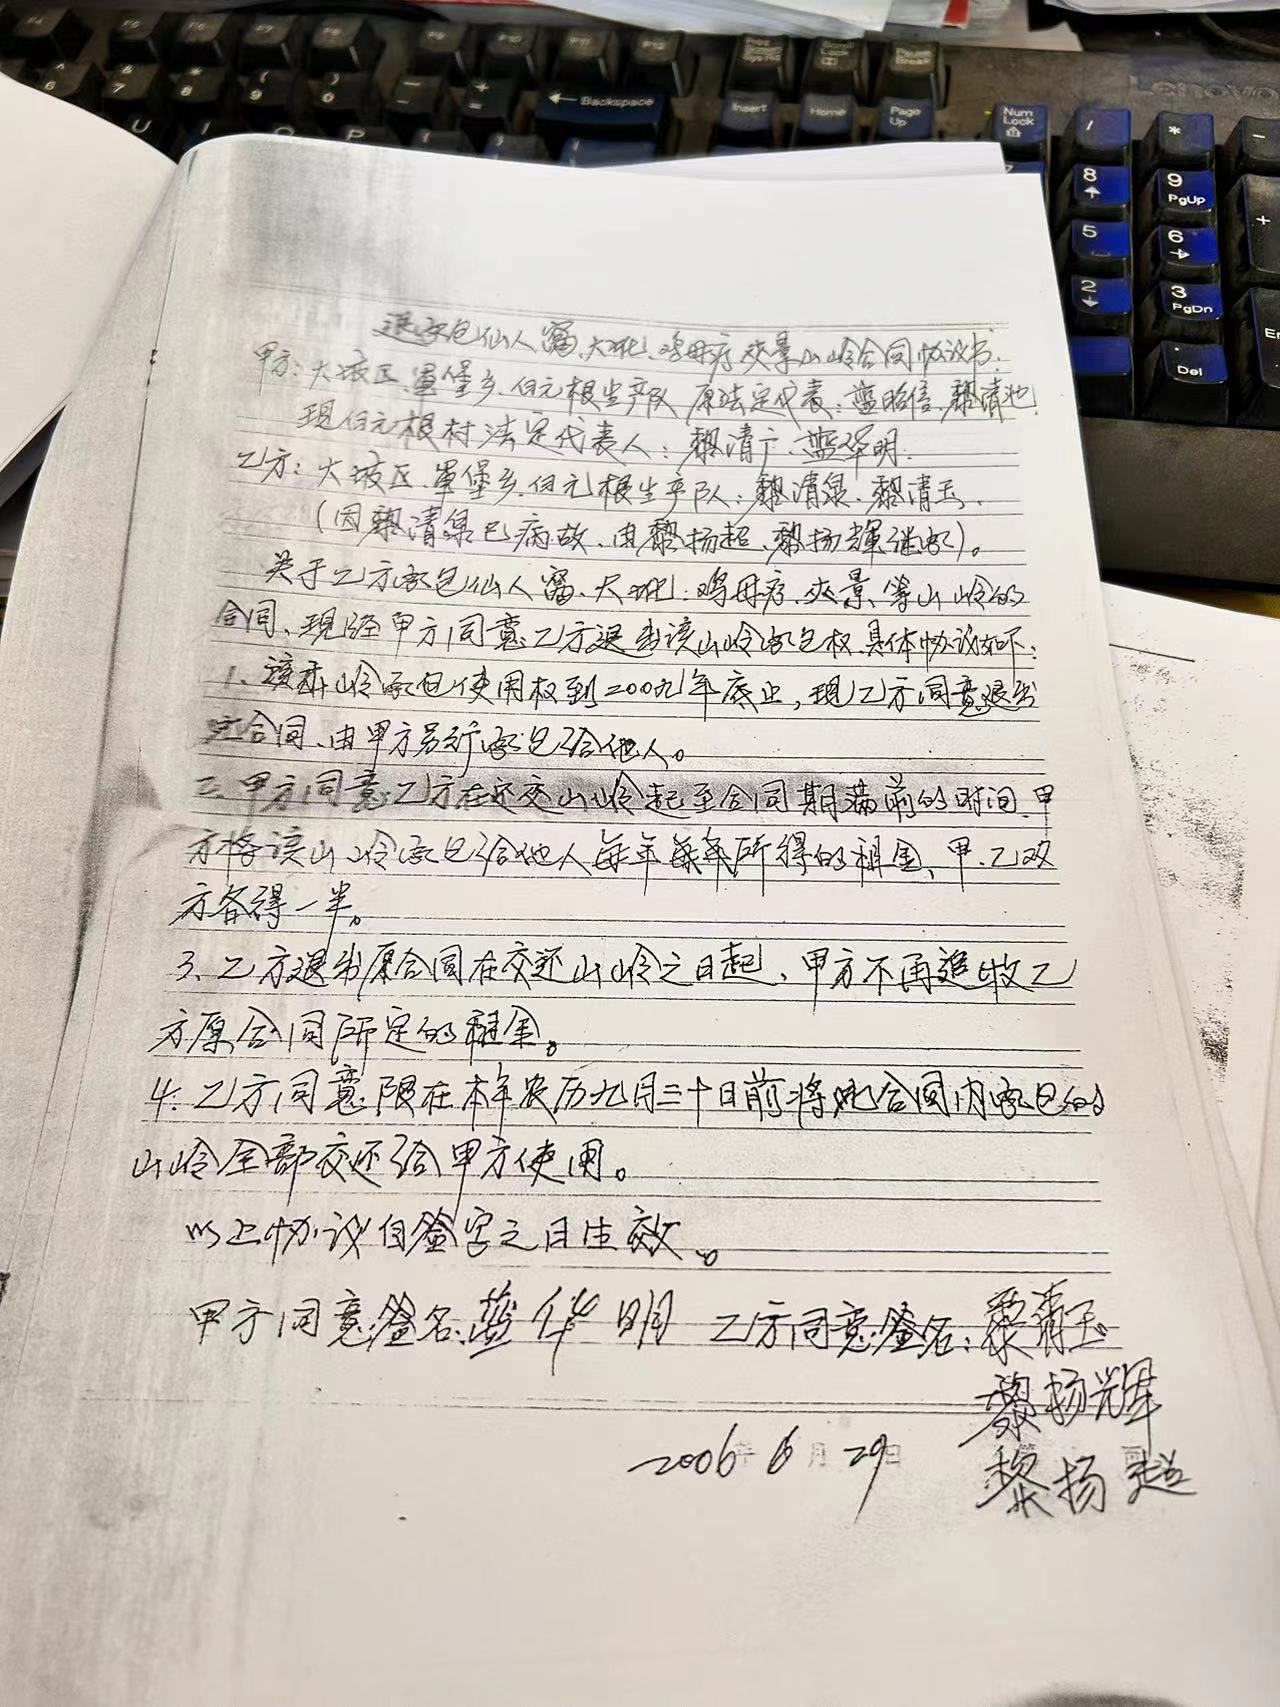 F4 F5 F6 F7 F8 F9 F10 F11 F12 Print Screen SysRq Scroll Lock Pause Break
6 7 8 9 0 - + = ← Backspace Insert Home Page Up Num Lock / * -
U I O P
lenovo
8 9 PgUp +
5 6
2 3 PgDn
Del
退承包仙人窩、大地、鸡毋寮、夹景山岭合同协议书.
甲方：大坡区、覃堡乡、白元根生产队 原法定代表：蓝昭信、黎清池.
现白元根村法定代表人：黎清广、蓝华明.
乙方：大坡区、覃堡乡、白元根生产队：黎清泉、黎清玉、
（因黎清泉已病故、由黎扬超、黎扬輝继承）。
关于乙方承包仙人窩、大地、鸡毋寮、夹景、等山岭的
合同、现经甲方同意乙方退出该山岭承包权、具体协议如下：
1、该山岭承包使用权到200九年底止，现乙方同意退出
合同、由甲方另行承包给他人。
二、甲方同意乙方在还交山岭起至合同期满前的时间、甲
方将该山岭承包给他人每年每年所得的租金、甲、乙双
方各得一半。
3、乙方退出原合同在交还山岭之日起、甲方不再追收乙
方原合同所定的租金。
4、乙方同意限在本年农历九月三十日前将此合同内承包的
山岭全部交还给甲方使用。
以上协议自签字之日生效。
甲方同意签名：蓝华明 乙方同意签名：黎清玉
黎扬輝
黎扬超
2006年6月29日